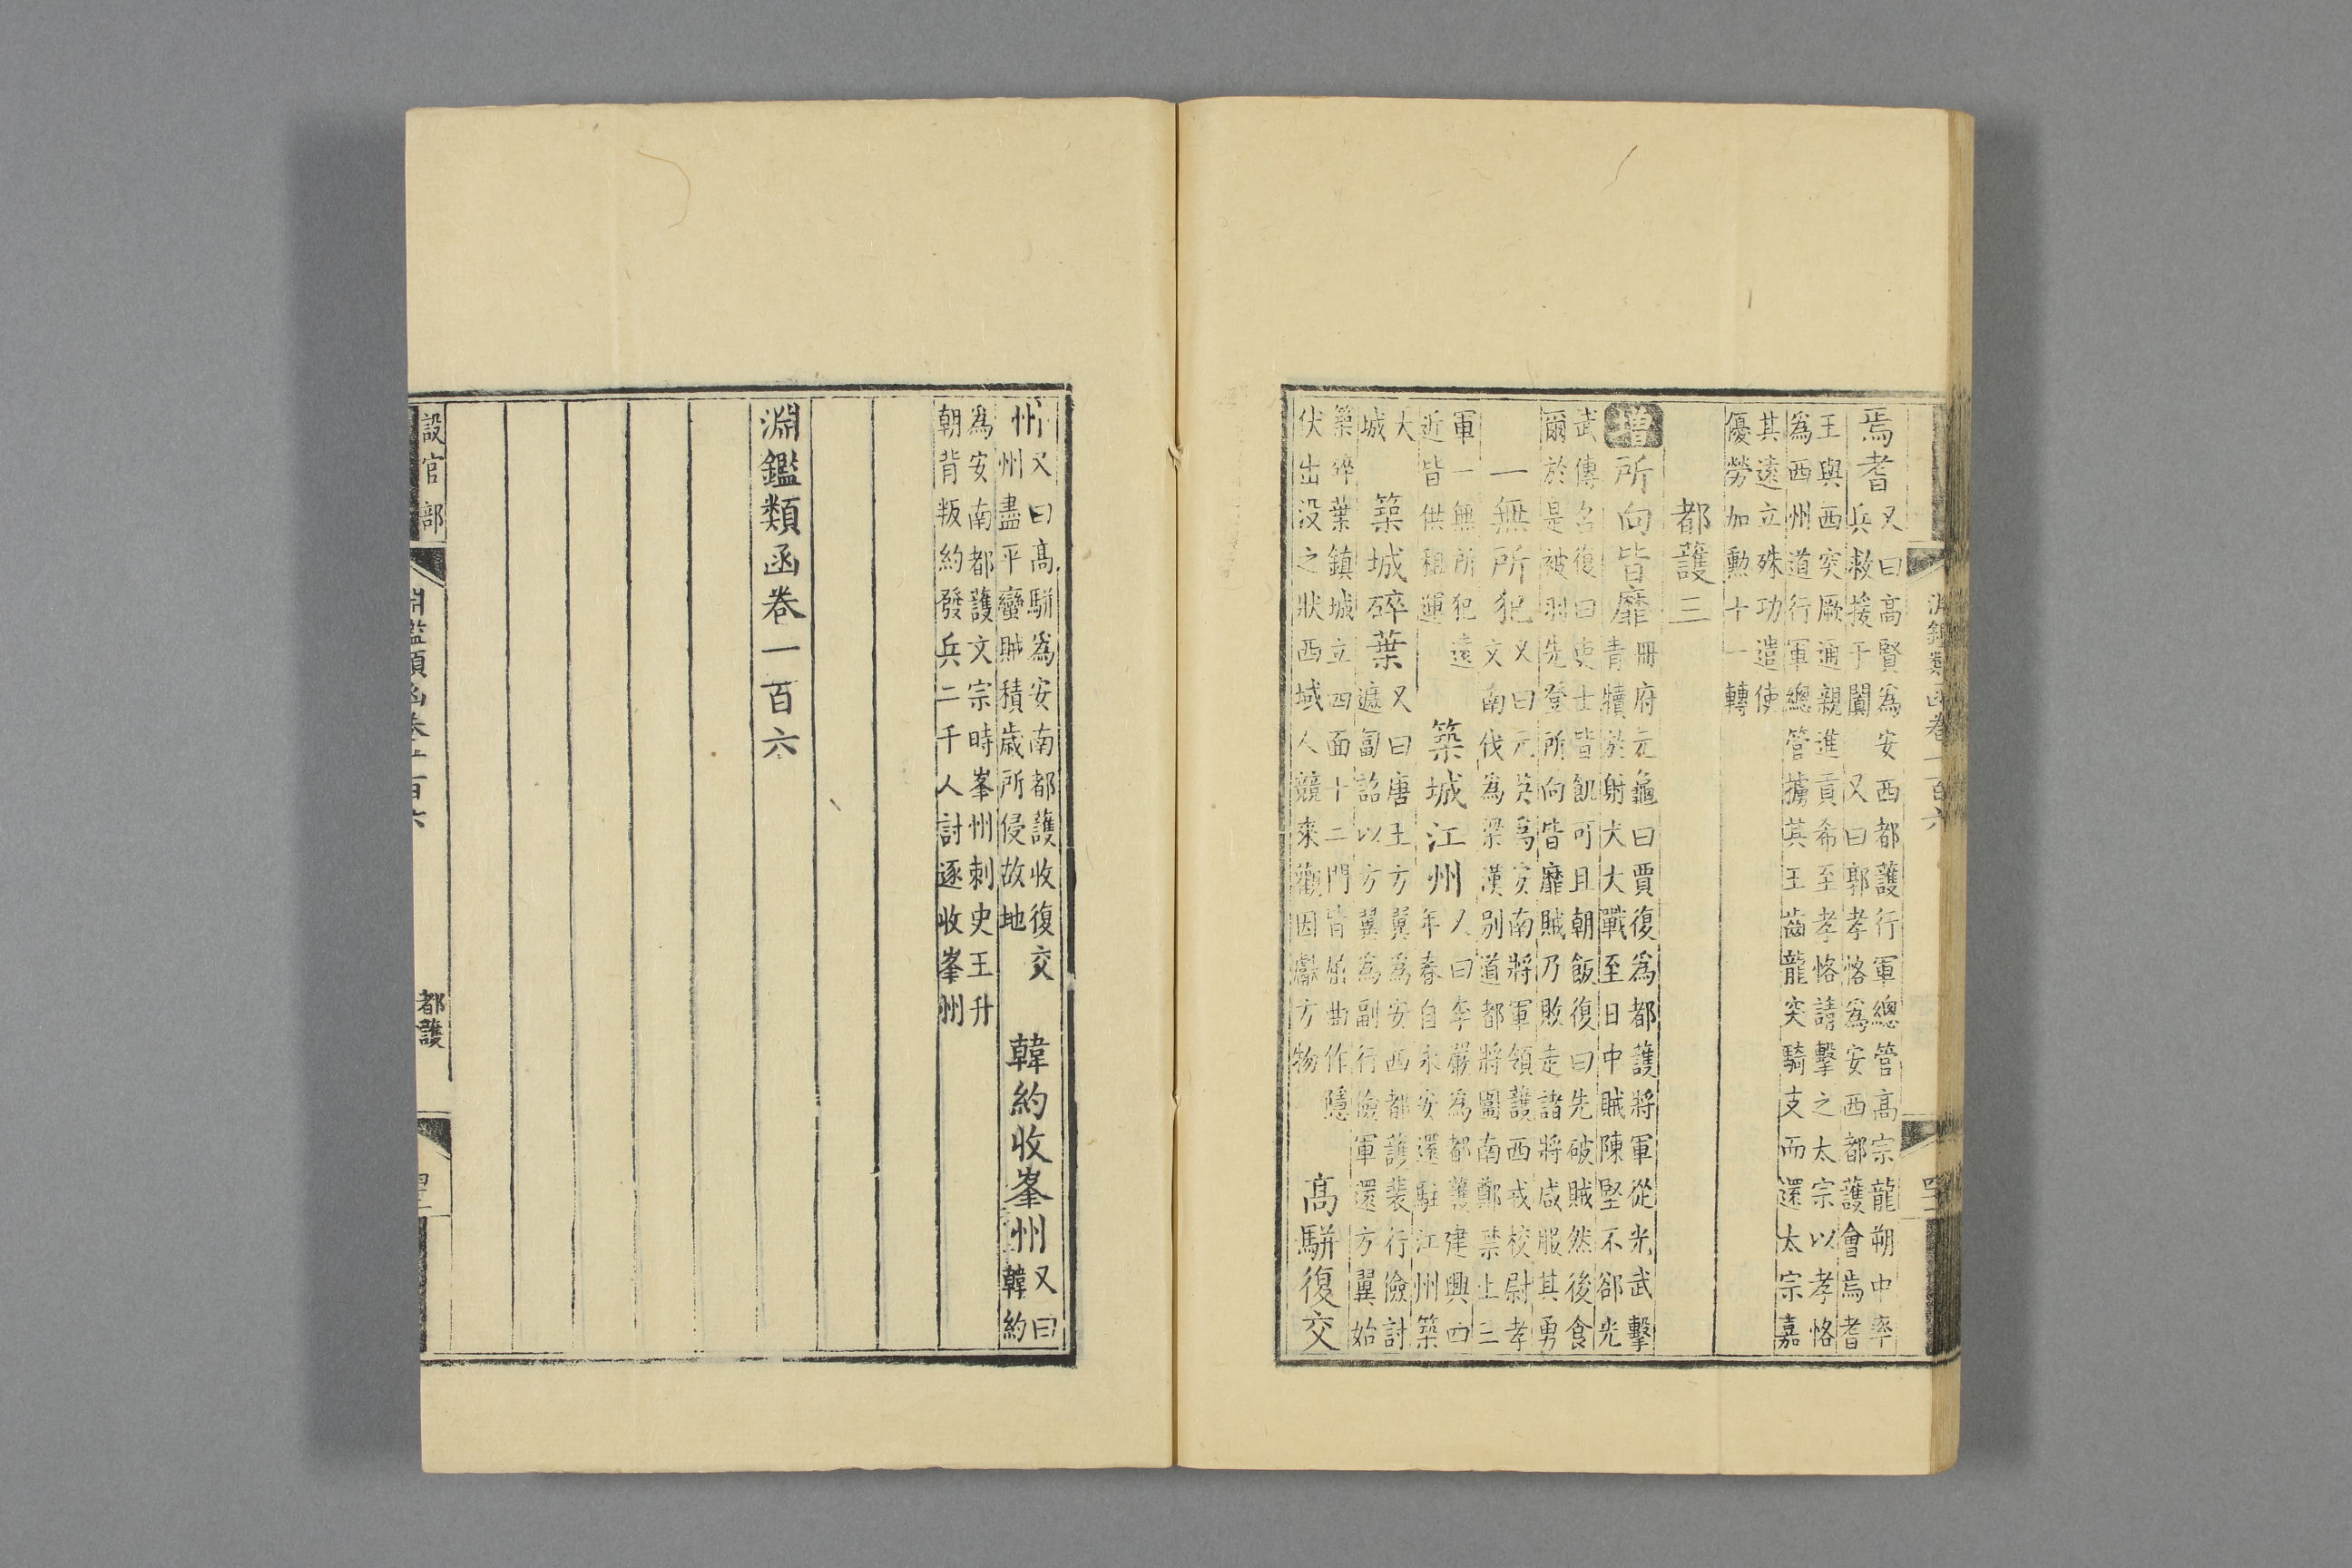 淵鑑類函卷一百六
焉耆又曰高賢爲安西都護行軍總管高宗龍朔中率
兵救援于闐 又曰郭孝恪爲安西都護會焉耆
王與西突厥通親進貢希至孝恪請擊之太宗以孝恪
爲西州道行軍總管擄其王齒龍突騎支而還太宗嘉
其遠立殊功遣使
優勞加勳十一轉
都護三
增所向皆靡冊府元龜曰賈復爲都護將軍從光武擊
青犢於射犬大戰至日中賊陳堅不郤光
武傳召復曰吏士皆飢可且朝飯復曰先破賊然後食
爾於是被羽先登所向皆靡賊乃敗走諸將咸服其勇
一無所犯又曰元英爲安南將軍領護西戎校尉孝
文南伐爲梁漢別道都將圍南鄭禁止三
軍一無所犯遠
近皆供租運
築城江州又曰李嚴爲都護建興四
年春自永安還駐江州築
大
城
築城碎葉又曰唐王方翼爲安西都護裴行儉討
遮匐詔以方翼爲副行儉軍還方翼始
築碎葉鎮城立四面十二門皆屈曲作隱
伏出没之狀西域人競來觀因獻方物
高駢復交
州又曰高駢爲安南都護收復交
州盡平蠻賊積歲所侵故地
韓約收峯州又曰
韓約
爲安南都護文宗時峯州刺史王升
朝背叛約發兵二千人討逐收峯州
淵鑑類函卷一百六
設官部
淵鑑類函卷一百六
都護